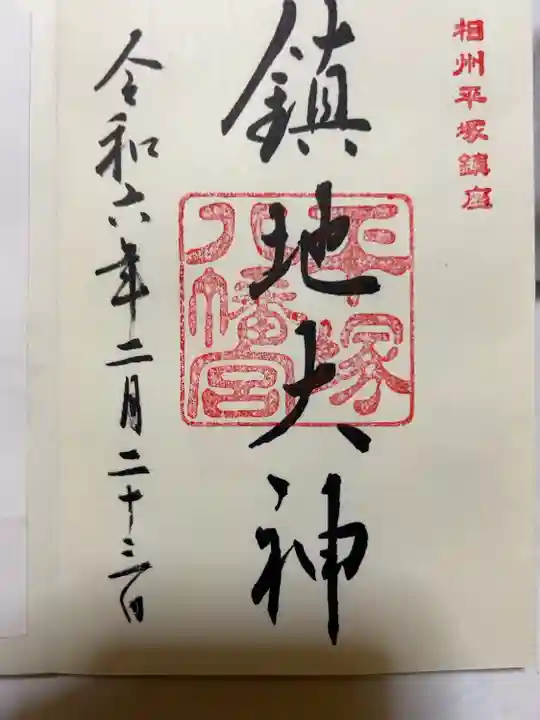 相州平塚鎮座
鎮地大神
平塚
八幡宮
令和六年二月二十三日